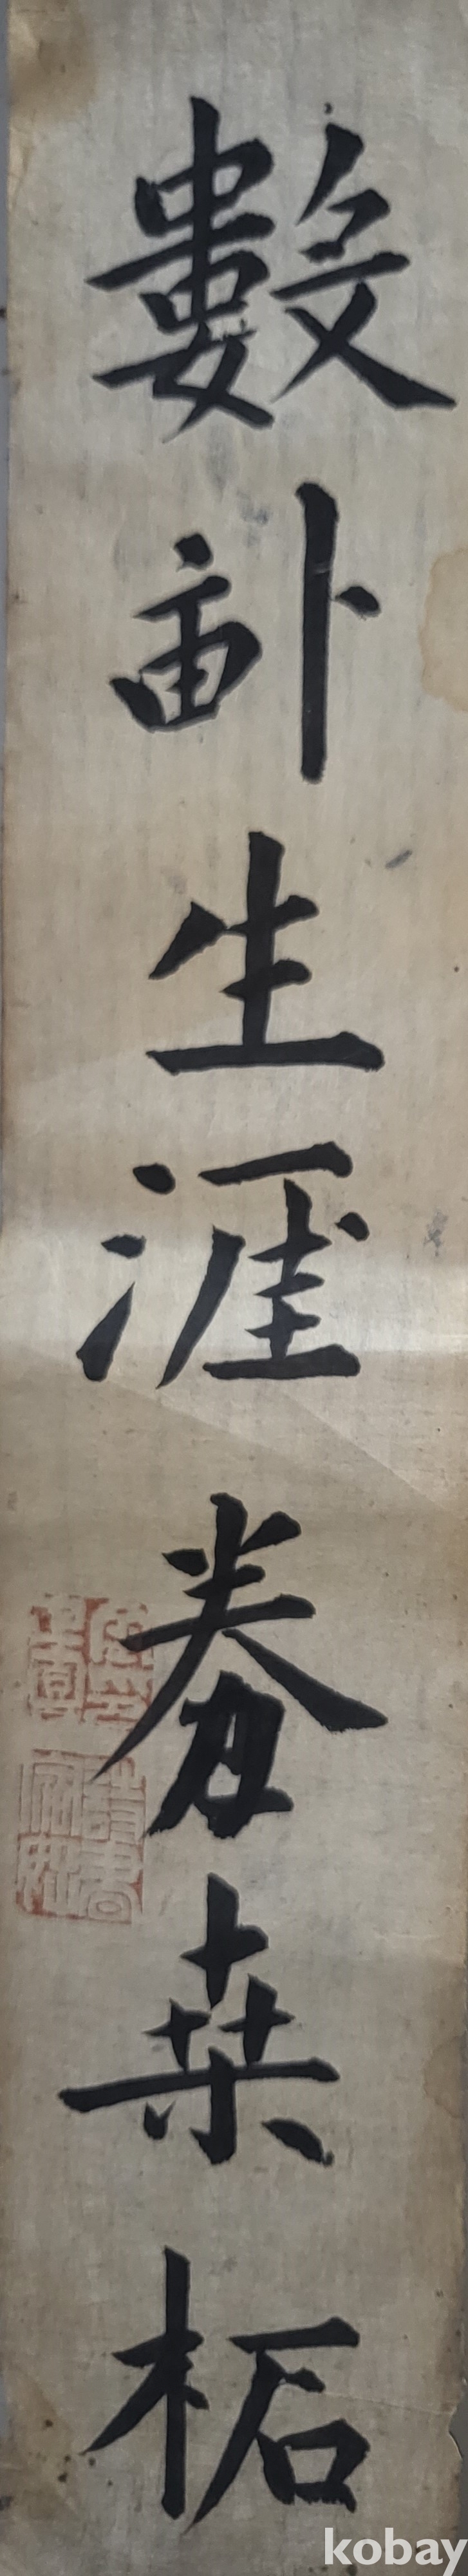 數畝生涯養桒柘
kobay